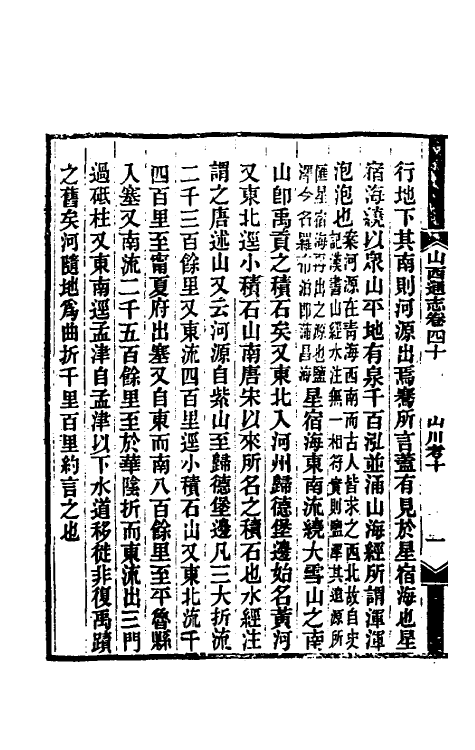 山西通志卷四十
山川考十
一
行地下其南則河源出焉騫所言蓋有見於星宿海也星
宿海遶以衆山平地有泉千百泓並涌山海經所謂渾渾
泡泡也案河源在靑海西南而古人皆求之西北故自史
記漢書山經水注無一相符實則鹽澤其遠源所
匯星宿海再出之源也鹽
澤今名羅布泊卽蒲昌海星宿海東南流繞大雪山之南
山卽禹貢之積石矣又東北入河州歸德堡邊始名黃河
又東北逕小積石山南唐宋以來所名之積石也水經注
謂之唐述山又云河源自崑山至歸德堡邊凡三大折流
二千三百餘里又東流四百里逕小積石山又東北流千
四百里至甯夏府出塞又自東而南八百餘里至平魯縣
入塞又南流二千五百餘里至於華陰折而東流出三門
過砥柱又東南逕孟津自孟津以下水道移徙非復禹蹟
之舊矣河隨地爲曲折千里百里約言之也